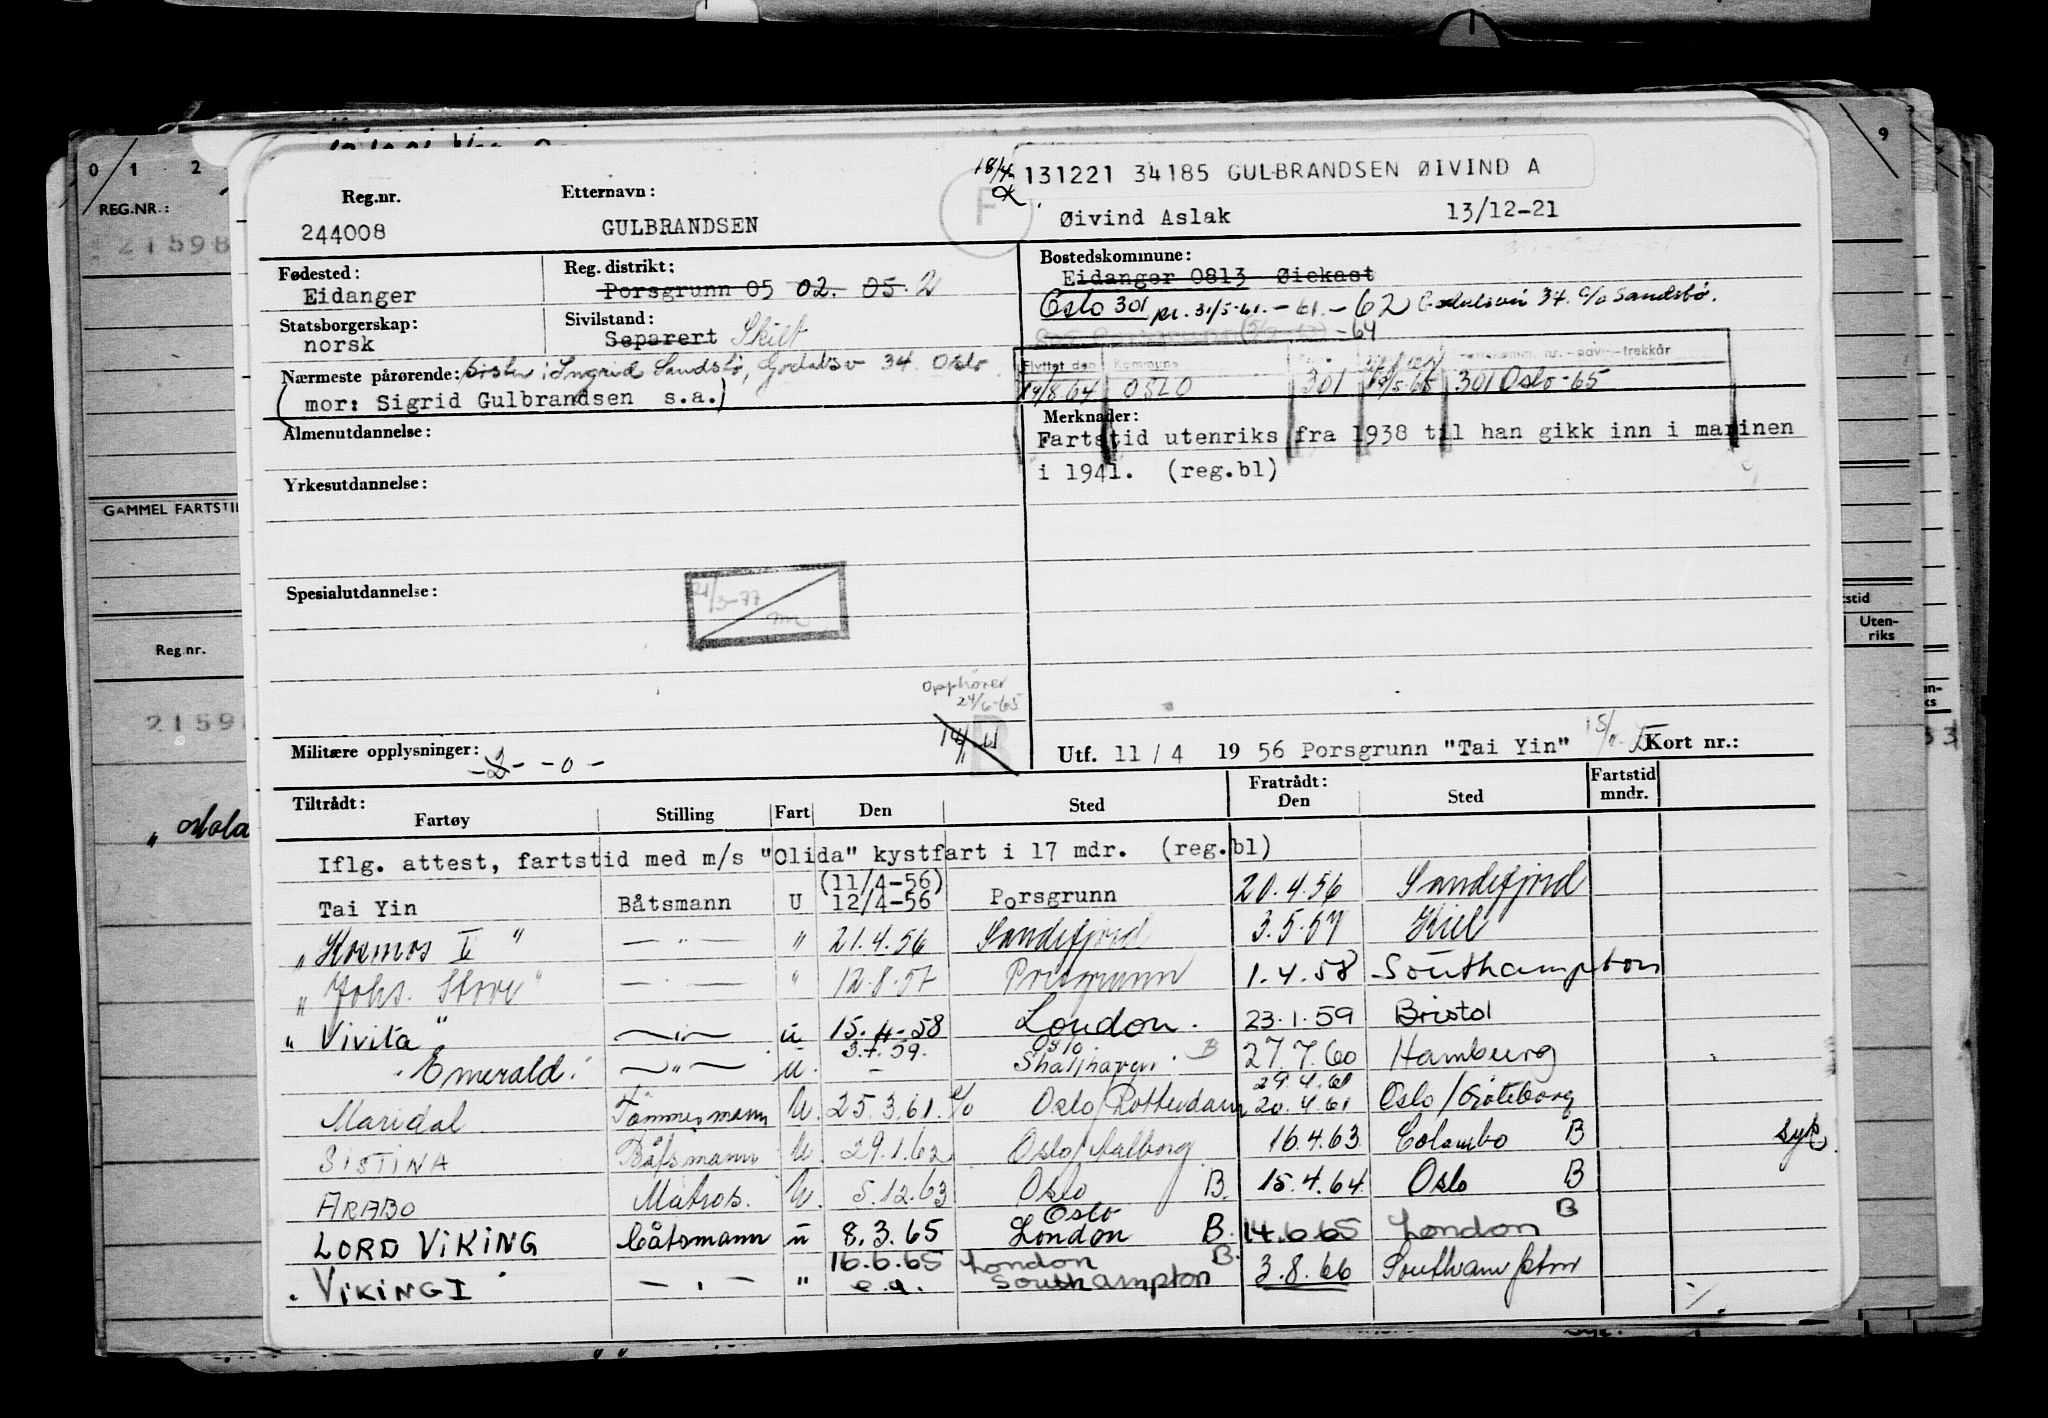 0 1 2
9
REG.NR.:
21598
GAMMEL FARTSTI
Reg.nr.
2159
stid
Uten-
riks
18/4
131221 34185 GULBRANDSEN ØIVIND A
F
Reg.nr.
Etternavn:
244008
GULBRANDSEN
Øivind Aslak
13/12-21
Fødested:
Eidanger
Reg. distrikt:
Porsgrunn 05 02. 05. 2
Bostedskommune:
Eidanger 0813 Øiekast
Oslo 301 pr. 31/5-61. - 61. - 62 34 c/o Sandsbø.
-64
Statsborgerskap:
norsk
Sivilstand:
Separert Skilt
Flyttet den Kommune
19/8 64 OSLO 301 19/5-65 301 Oslo -65
Nærmeste pårørende: Søster: Ingrid Sandsbø, Godalsv 34 Oslo
(mor: Sigrid Gulbrandsen s.a.)
Almenutdannelse:
Merknader:
Fartstid utenriks fra 1938 til han gikk inn i marinen
i 1941. (reg.bl)
Yrkesutdannelse:
Spesialutdannelse:
21/3-77
Opphører
24/6-65
Militære opplysninger:
- - 0 -
Utf. 11 / 4 1956 Porsgrunn "Tai Yin"
Kort nr.:
Tiltrådt:
Fartøy Stilling Fart Den Sted
Fratrådt:
Den Sted
Fartstid
mndr.
Iflg. attest, fartstid med m/s "Olida" kystfart i 17 mdr. (reg.bl)
(11/4-56)
Tai Yin Båtsmann U 12/4-56 Porsgrunn 20.4.56 Sandefjord
"Kosmos V" — " — " 21.4.56 Sandefjord 3.5.57 Kiel
"Johs. Stove" — " — " 12.8.57 Porsgrunn 1.4.58 Southampton
"Vivita" — " — u 15.4-58 London. 23.1.59 Bristol
Oslo
"Emerald" — " — u. 3.7.59. B 27.7.60 Hamburg
29.4.61
Maridal Tømmermann U. 25.3.61. Oslo/Rotterdam 20.4.61 Oslo/Göteborg
SISTINA Båtsmann U. 29.1.62 Oslo/Aalborg 16.4.63 Colombo B syk
ARABO Matros. U. 5.12.63 Oslo B. 15.4.64 Oslo B
Oslo
LORD VIKING Båtsmann u 8.3.65 London B. 14.6.65 London B
16.6.65 London B.
VIKING I — " — " e.a. Southampton 3.8.66 Southampton